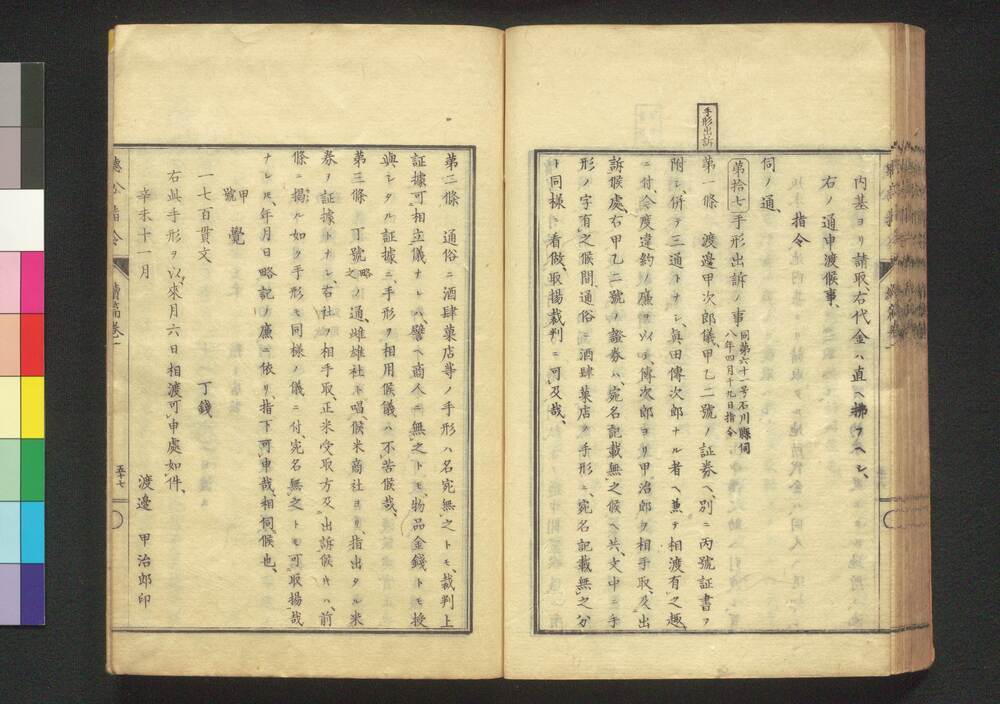 手形出訴
内基ヨリ請取、右代金ハ直ヘ拂フヘシ、
右ノ通申渡候事、
指令
伺ノ通、
第拾七 手形出訴ノ事 同第六十一号石川縣伺 八年四月十九日指令
第一條 渡邉甲次郎儀、甲乙二號ノ証券ヘ、別ニ丙號証書ヲ
附シ、併テ三通トナシ、眞田傳次郎ナル者ヘ兼テ相渡有之趣、
ニ付、今度違約ノ廉ヲ以テ、傳次郎ヨリ甲治郎ヲ相手取及出
訴候處、右甲乙二號ノ證券ハ、宛名記載無之候ヘ共、文中ニ手
形ノ字有之候間、通俗ニ酒肆菓店ノ手形ニ、宛名記載無之分
ト同樣ニ看做、取揚裁判ニ可及哉、
第二條 通俗ニ酒肆菓店等ノ手形ハ名宛無之トモ、裁判上
証據可相立儀ナレハ、譬ヘ商人ニ無之トモ、物品金錢トモ授
與シタル証據ニ、手形ヲ相用候儀ハ不苦候哉、
第三條 丁號略之ノ通、雌雄社ト唱候米商社ヨリ指出タル米
券ヲ証據トナシ、右社ヲ相手取、正米受取方及出訴候片ハ、前
條ニ揭ル如ク手形モ同樣ノ儀ニ付、宛名無之トモ可取揚哉
ナレ𪜈、年月日略記ノ廉ニ依リ、指下可申哉、相伺候也、
甲號 覺
一七百貫文 丁錢
右此手形ヲ以、來月六日相渡可申處如件、
辛未十一月 渡邉 甲治郎印
五十七